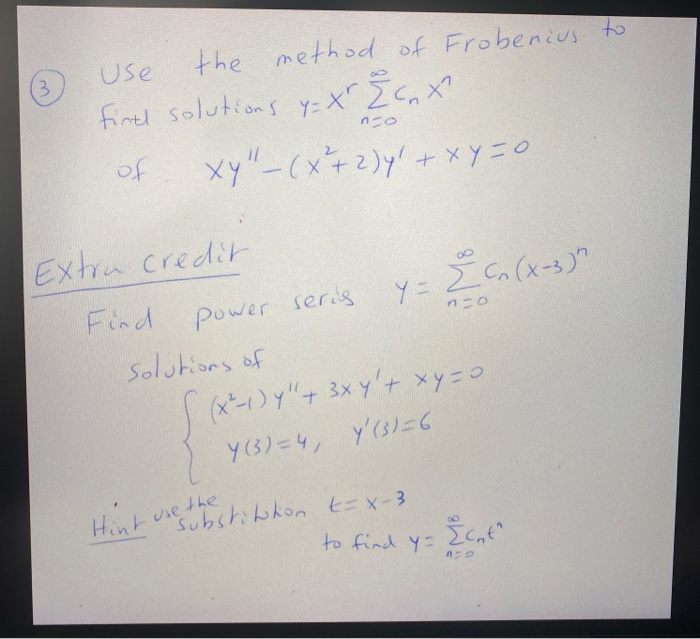 3 Use the method of Frobenius to
find solutions y = x^r ∑_{n=0}^{∞} c_n x^n
of xy'' - (x²+2)y' + xy = 0
Extra credit
Find power seris y = ∑_{n=0}^{∞} c_n (x-3)^n
solutions of
{ (x²-1)y'' + 3xy' + xy = 0
y(3)=4, y'(3)=6
Hint use the substitution t = x-3
to find y = ∑_{n=0}^{∞} c_n t^n